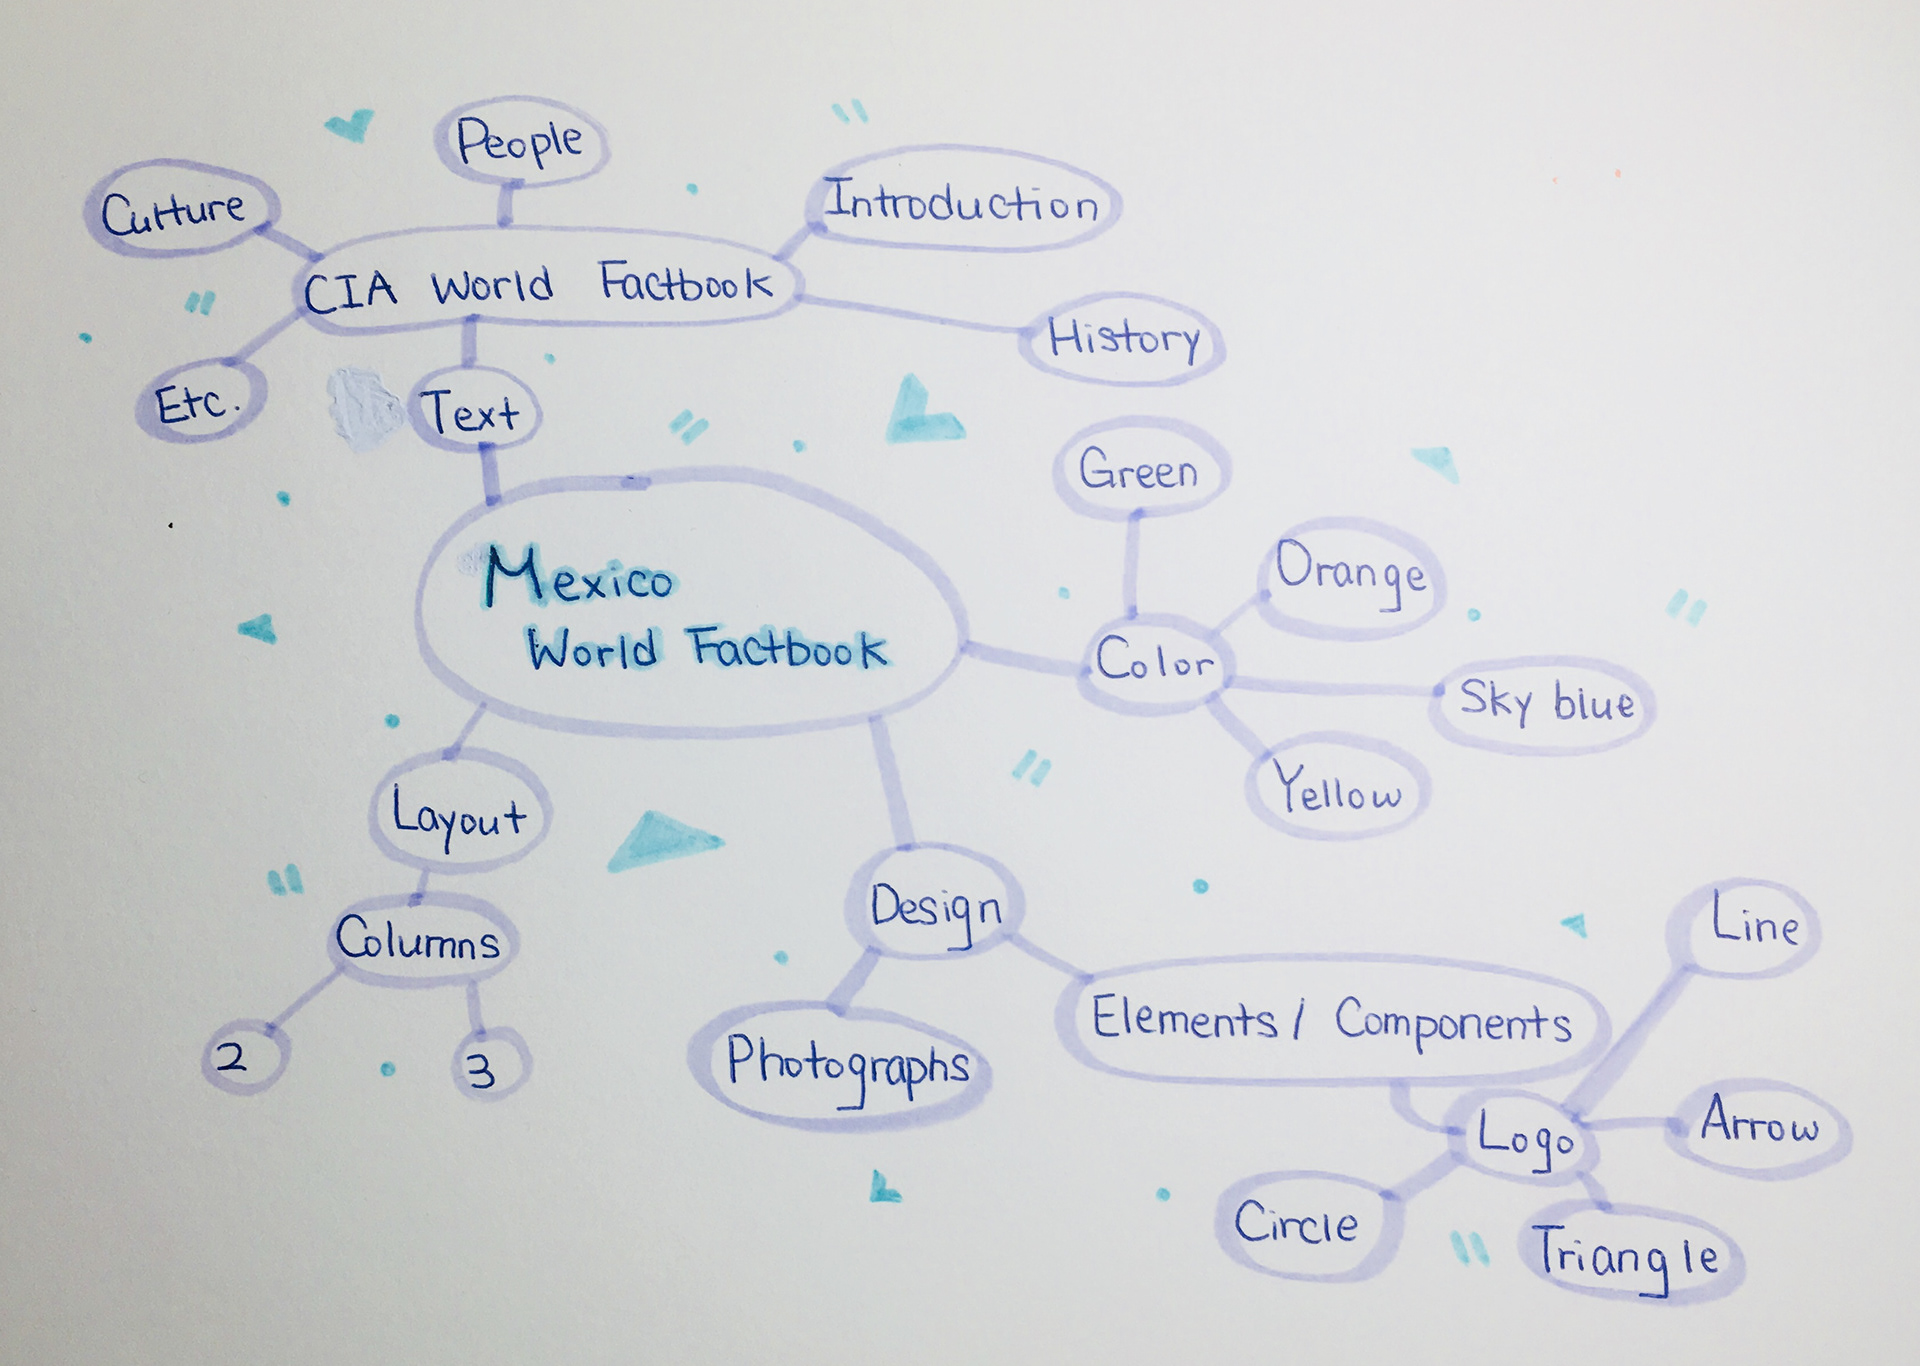 People
Culture
Introduction
CIA World Factbook
History
Etc.
Text
Green
Mexico
World Factbook
Orange
Color
Sky blue
Yellow
Layout
Design
Columns
Line
Elements / Components
2
3
Photographs
Logo
Arrow
Circle
Triangle